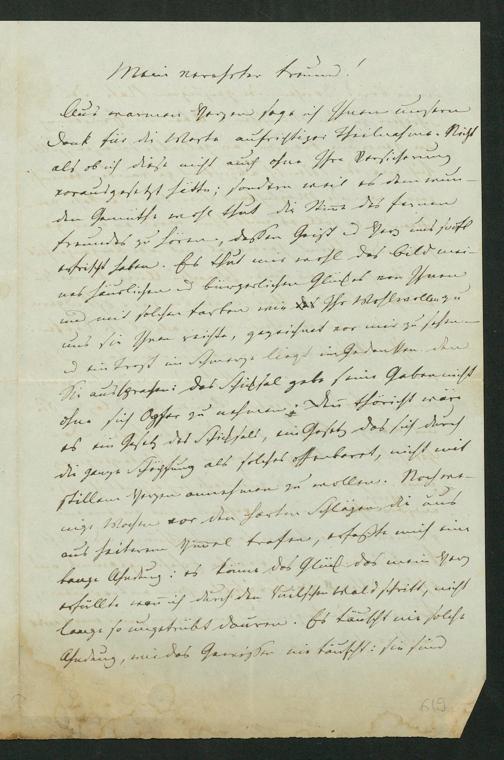 Mein verehrter Freund!
Aus warmem Herzen sage ich Ihnen unsern
Dank für die Worte aufrichtiger Theilnahme. Nicht
als ob ich diese nicht auch ohne Ihre Versicherung
vorausgesetzt hätte; sondern weil es dem wun-
den Gemüthe wohl thut die Stimme des fernen
Freundes zu hören, dessen Geist u Herz uns so oft
erfrischt haben. Es thut mir wohl das Bild mei-
nes häuslichen u bürgerlichen Glückes von Ihnen
und mit solchen Farben wie Ihr Wohlwollen zu
uns sie Ihnen reichte, gezeichnet vor mir zu sehen
u ein Trost im Schmerze liegt im Gedanken den
Sie aussprachen: das Schicksal gebe seine Gaben nicht
ohne sich Opfer zu nehmen; Denn thöricht wäre
es ein Gesetz des Schicksals, ein Gesetz das sich durch
die ganze Schöpfung als solches offenbaret, nicht mit
stillem Herzen annehmen zu wollen. Noch we-
nige Wochen vor den harten Schlägen, die uns
aus heiterem Himmel trafen, erfaßte mich eine
bange Ahndung: es könne das Glück das mein Herz
erfüllte wenn ich durch den Wald schritt, nicht
lange so ungetrübt dauern. Es täuscht nie solche
Ahndung, wie das Gewissen nie täuscht: sie sind